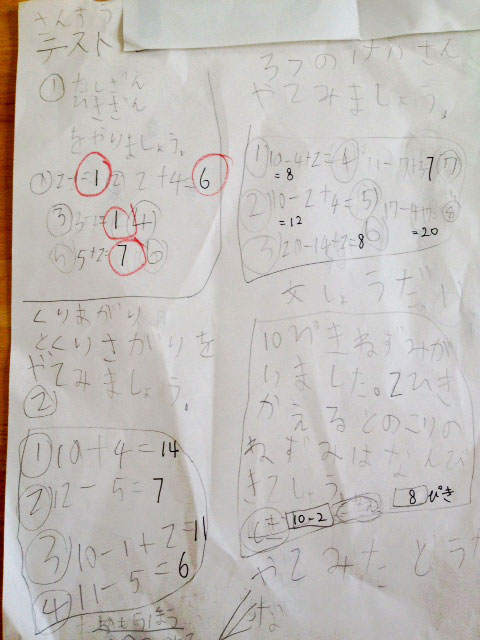 さんすう
テスト
① たしざん
ひきざん
をやりましょう。
① 2-1=1 ② 2+4=6
③
5+2=7
くりあがり
とくりさがりを
やてみましょう。
②
① 10+4=14
② 12-5=7
③ 10-1+2=11
④ 11-5=6
3つのけいさん
やてみましょう。
① 10-4+2=
=8
④
7
⑦
② 10-2+4=
=12
⑤
=20
③ 20-14+2=8
⑥
10ぴきねずみが
いました。2ひき
かえるとのこりの
ねずみはなんび
きでしょう。
しき 10-2
8 ぴき
やてみたどう